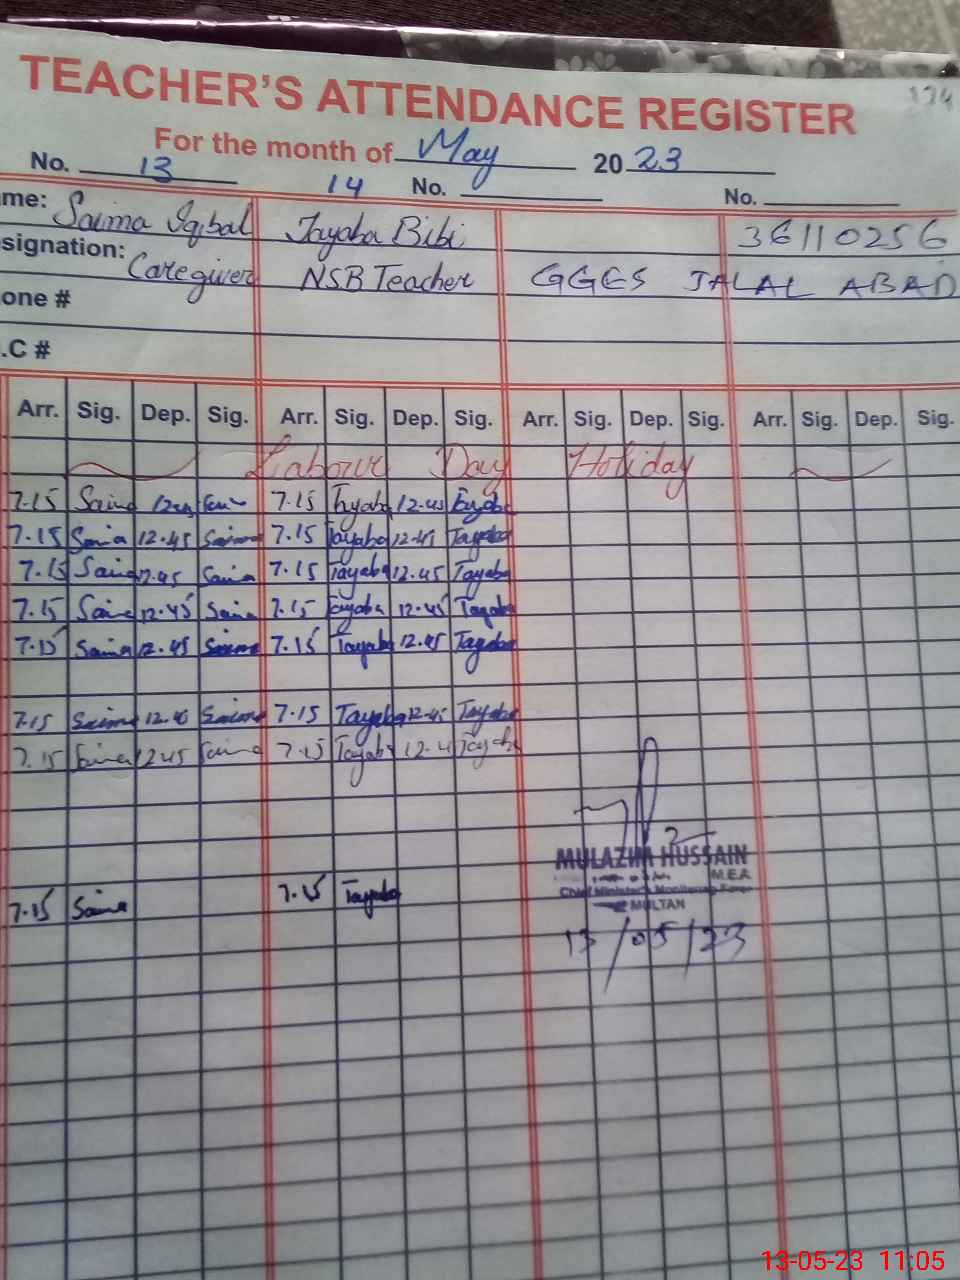 174
TEACHER'S ATTENDANCE REGISTER
For the month of May 2023
No. 13 14 No. No.
me: Saima Iqbal Tayaba Bibi 36110256
signation: Caregiver NSB Teacher GGES JALAL ABAD
one #
.C #
Arr. Sig. Dep. Sig. Arr. Sig. Dep. Sig. Arr. Sig. Dep. Sig. Arr. Sig. Dep. Sig.
Labour Day Holiday
7.15 Saima 12.45 7.15 Tayaba 12.45 Tayaba
7.15 Saima 12.45 Saima 7.15 Tayaba 12.45 Tayaba
7.15 Saima 12.45 Saima 7.15 Tayaba 12.45 Tayaba
7.15 Saima 12.45 Saima 7.15 Tayaba 12.45 Tayaba
7.15 Saima 12.45 Saima 7.15 Tayaba 12.45 Tayaba
7.15 Saima 12.45 Saima 7.15 Tayaba 12.45 Tayaba
7.15 Saima 12.45 Saima 7.15 Tayaba 12.4 Tayaba
MULAZIM HUSSAIN
M.E.A
Chief Minister's Monitoring Force
MULTAN
7.15 Saima 7.15 Tayaba
13/05/23
13-05-23 11:05